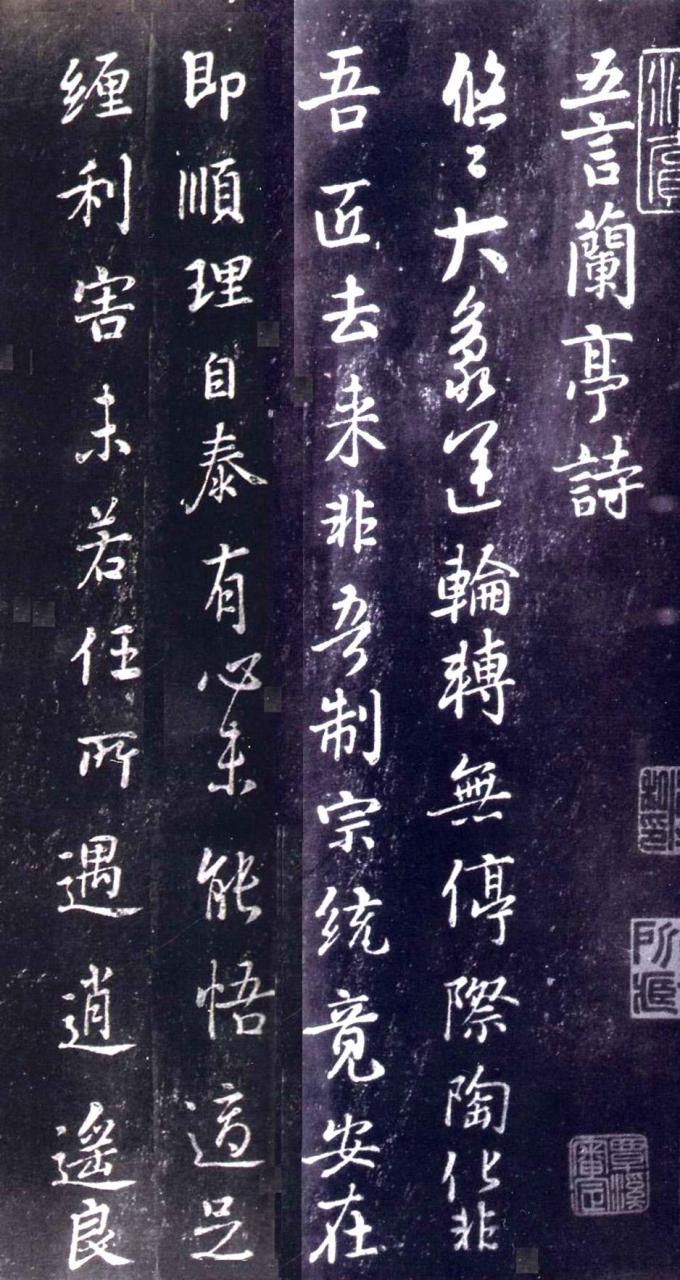 五言蘭亭詩
悠〻大象運輪轉無停際陶化非
吾匠去来非吾制宗統竟安在
即順理自泰有心未能悟適足
纏利害未若任所遇逍遥良
覃溪審定